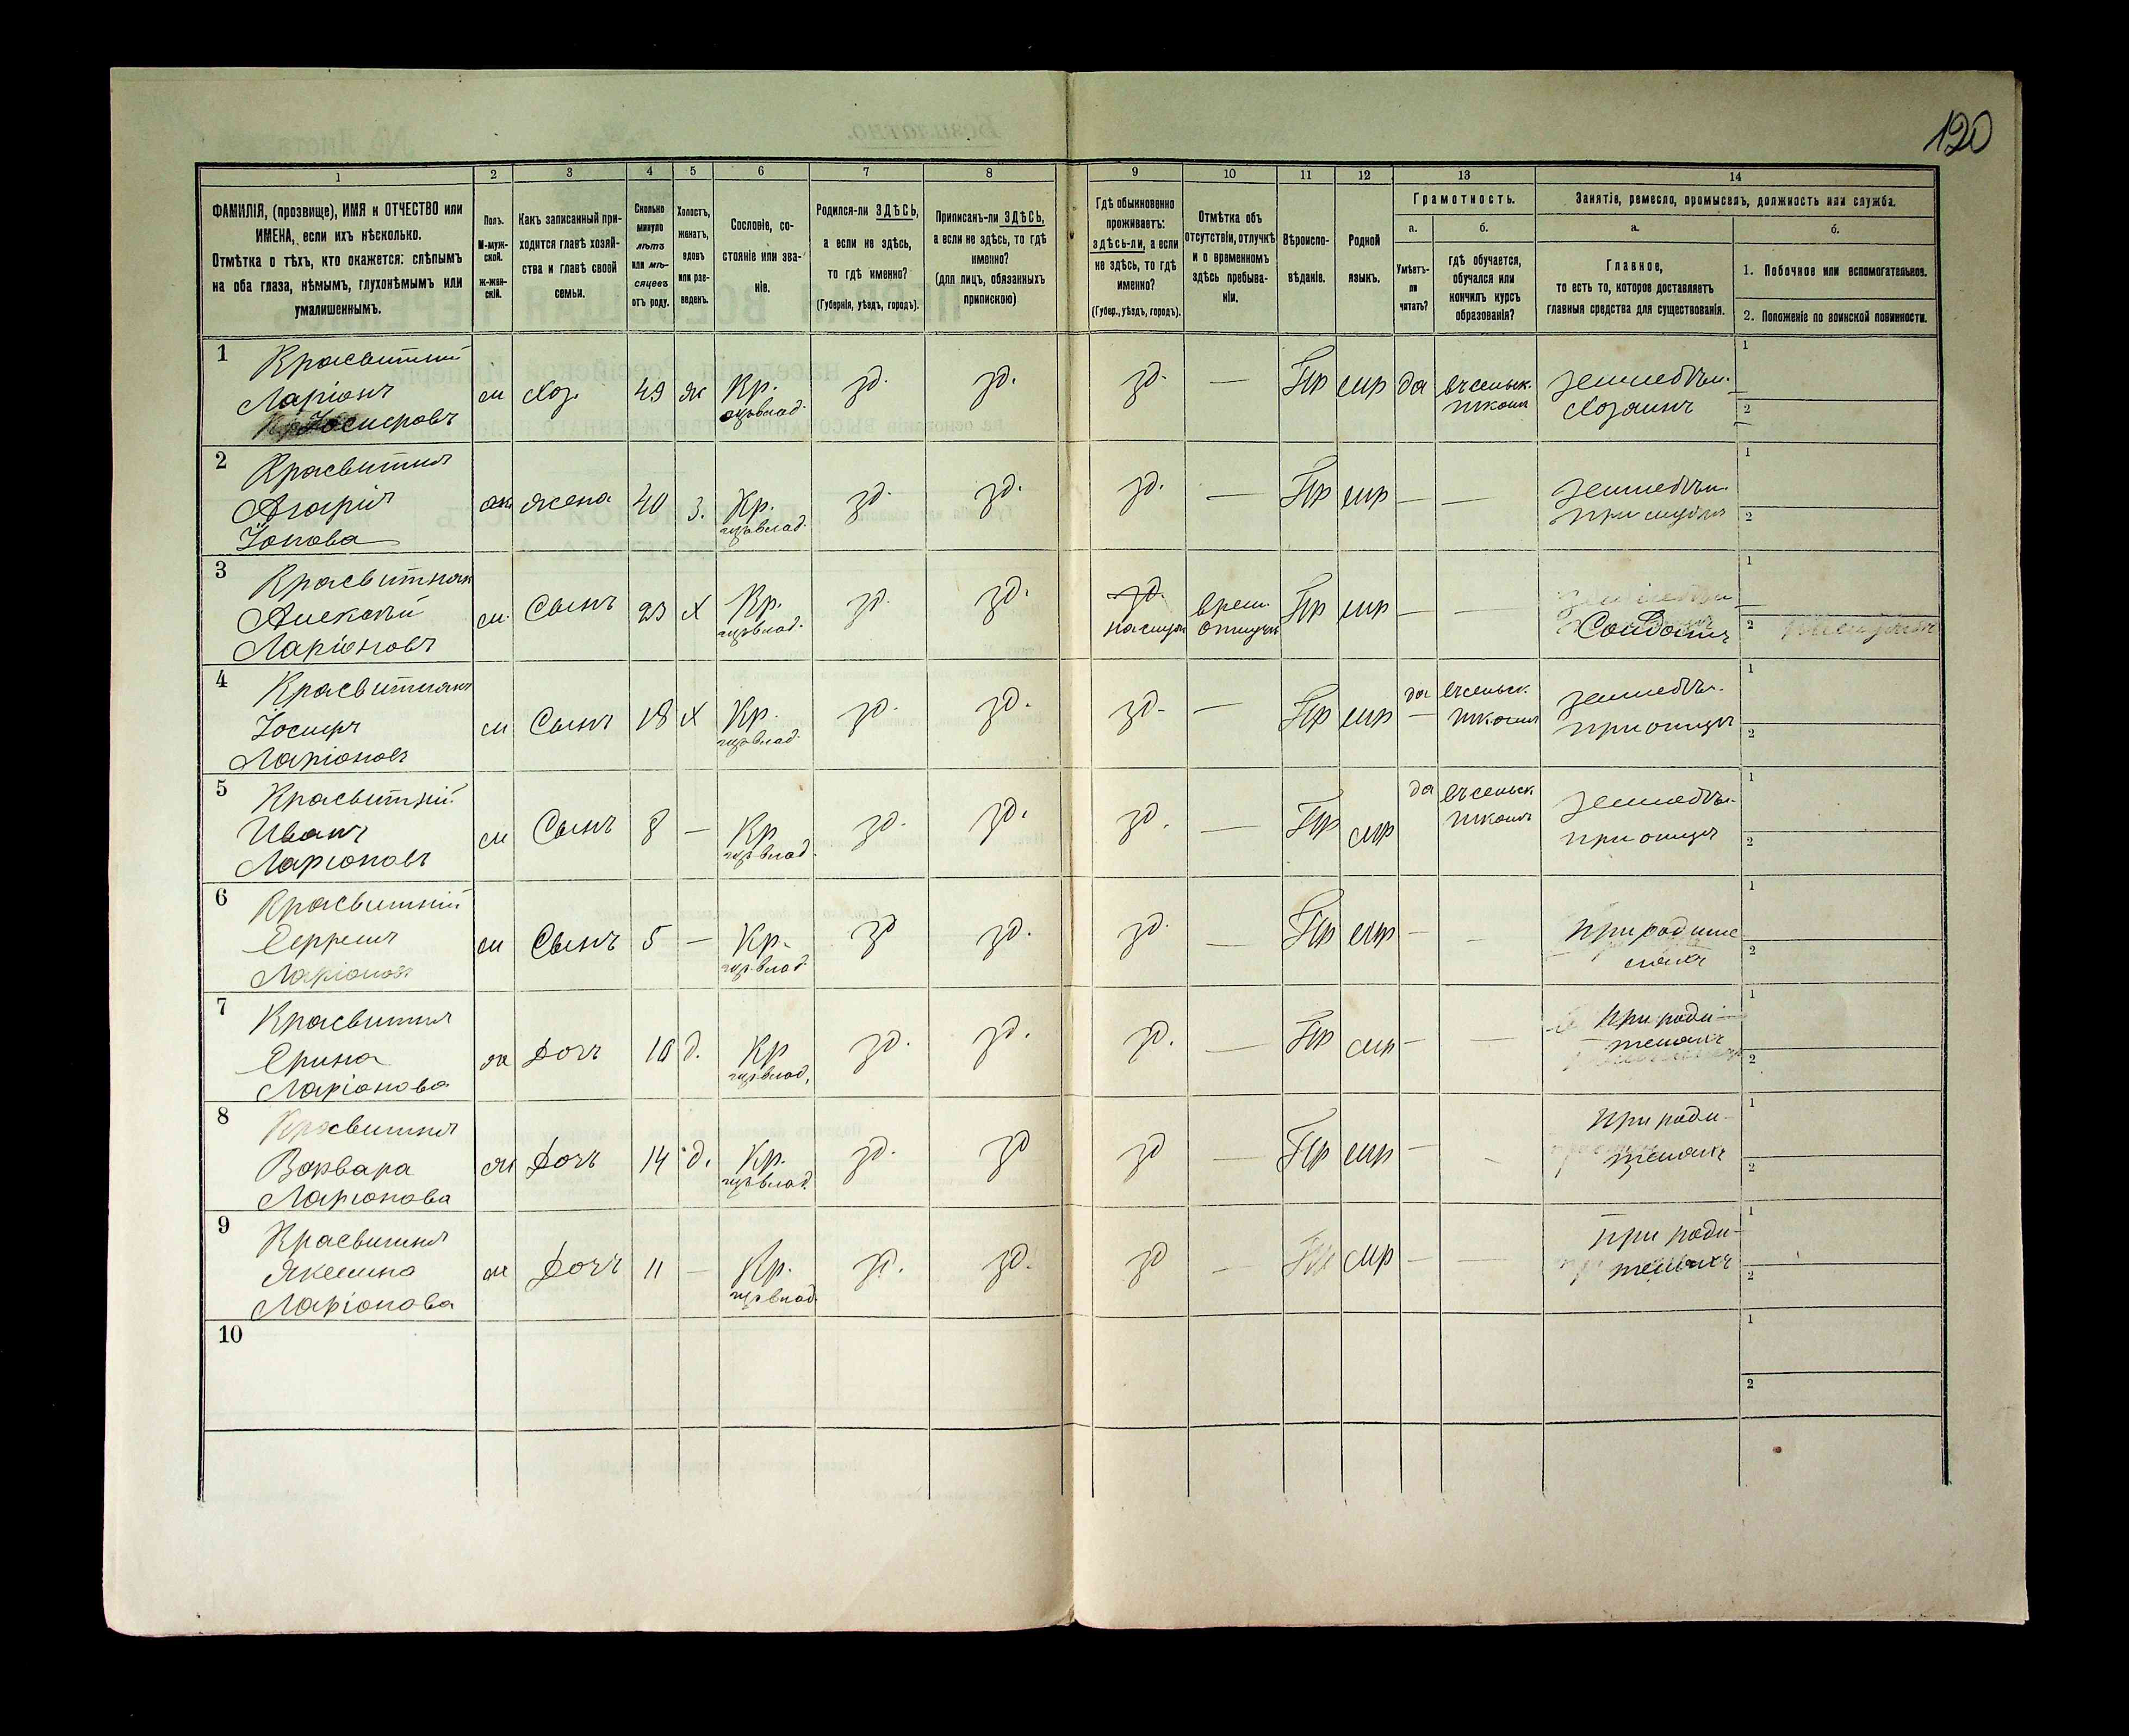 120
1 2 3 4 5 6 7 8 9 10 11 12 13 14
ФАМИЛІЯ, (прозвище), ИМЯ и ОТЧЕСТВО или
ИМЕНА, если ихъ нѣсколько.
Отмѣтка о тѣхъ, кто окажется: слѣпымъ
на оба глаза, нѣмымъ, глухонѣмымъ или
умалишеннымъ.
Полъ.
М-муж-
ской.
ж-жен-
скій.
Какъ записанный при-
ходится главѣ хозяй-
ства и главѣ своей
семьи.
Сколько
минуло
лѣтъ
или мѣ-
сяцевъ
отъ роду.
Холостъ,
женатъ,
вдовъ
или раз-
веденъ.
Сословіе, со-
стояніе или зва-
ніе.
Родился-ли ЗДѢСЬ,
а если не здѣсь,
то гдѣ именно?
(Губернія, уѣздъ, городъ).
Приписанъ-ли ЗДѢСЬ,
а если не здѣсь, то гдѣ
именно?
(для лицъ, обязанныхъ
припискою)
Гдѣ обыкновенно
проживаетъ:
здѣсь-ли, а если
не здѣсь, то гдѣ
именно?
(Губер., уѣздъ, городъ).
Отмѣтка объ
отсутствіи, отлучкѣ
и о временномъ
здѣсь пребыва-
ніи.
Вѣроиспо-
вѣданіе.
Родной
языкъ.
Грамотность.
а.
Умѣетъ-
ли
читать?
б.
гдѣ обучается,
обучался или
кончилъ курсъ
образованія?
Занятіе, ремесло, промыселъ, должность или служба.
а.
Главное,
то есть то, которое доставляетъ
главныя средства для существованія.
б.
1. Побочное или вспомогательное.
2. Положеніе по воинской повинности.
1 Красвитній
Ларіонъ
Іосифовъ
м Хоз. 49 ж Кр. зд. зд. зд. — Пр мр да въ сельск. земледѣл.
школѣ Хозяинъ
1
2
2 Красвитня
Іонова
жена 40 з. Кр. зд. зд. зд. — Пр мр — — земледѣл.
1
2
3
Алексѣй
Ларіоновъ
м. Сынъ 23 х Кр. зд. зд. зд. врем. Пр мр — —
отлучкѣ Солдатъ
1
2
4
Іосифъ
Ларіоновъ
м Сынъ 18 х Кр. зд. зд. зд. — Пр мр да въ сельск. земледѣл.
школѣ при отцѣ
1
2
5 Красвитній
Иванъ
Ларіоновъ
м Сынъ 8 — Кр зд. зд. зд. — Пр мр да въ сельск. земледѣл.
школѣ при отцѣ
1
2
6 Красвитній
Ларіоновъ
м Сынъ 5 — Кр. зд зд. зд. — Пр мр — — при родите
ляхъ
1
2
7 Красвитня
Ерина
Ларіонова
ж Дочъ 16 д. Кр зд. зд. зд. — Пр мр — — при роди-
теляхъ
1
2
8 Красвитня
Варвара
Ларіонова
ж Дочъ 14 д. Кр. зд. зд зд — Пр мр — — при роди-
теляхъ
1
2
9 Красвитня
Якелина
Ларіонова
ж Дочъ 11 — Кр. зд. зд. зд — Пр мр — — при роди-
теляхъ
1
2
10
1
2